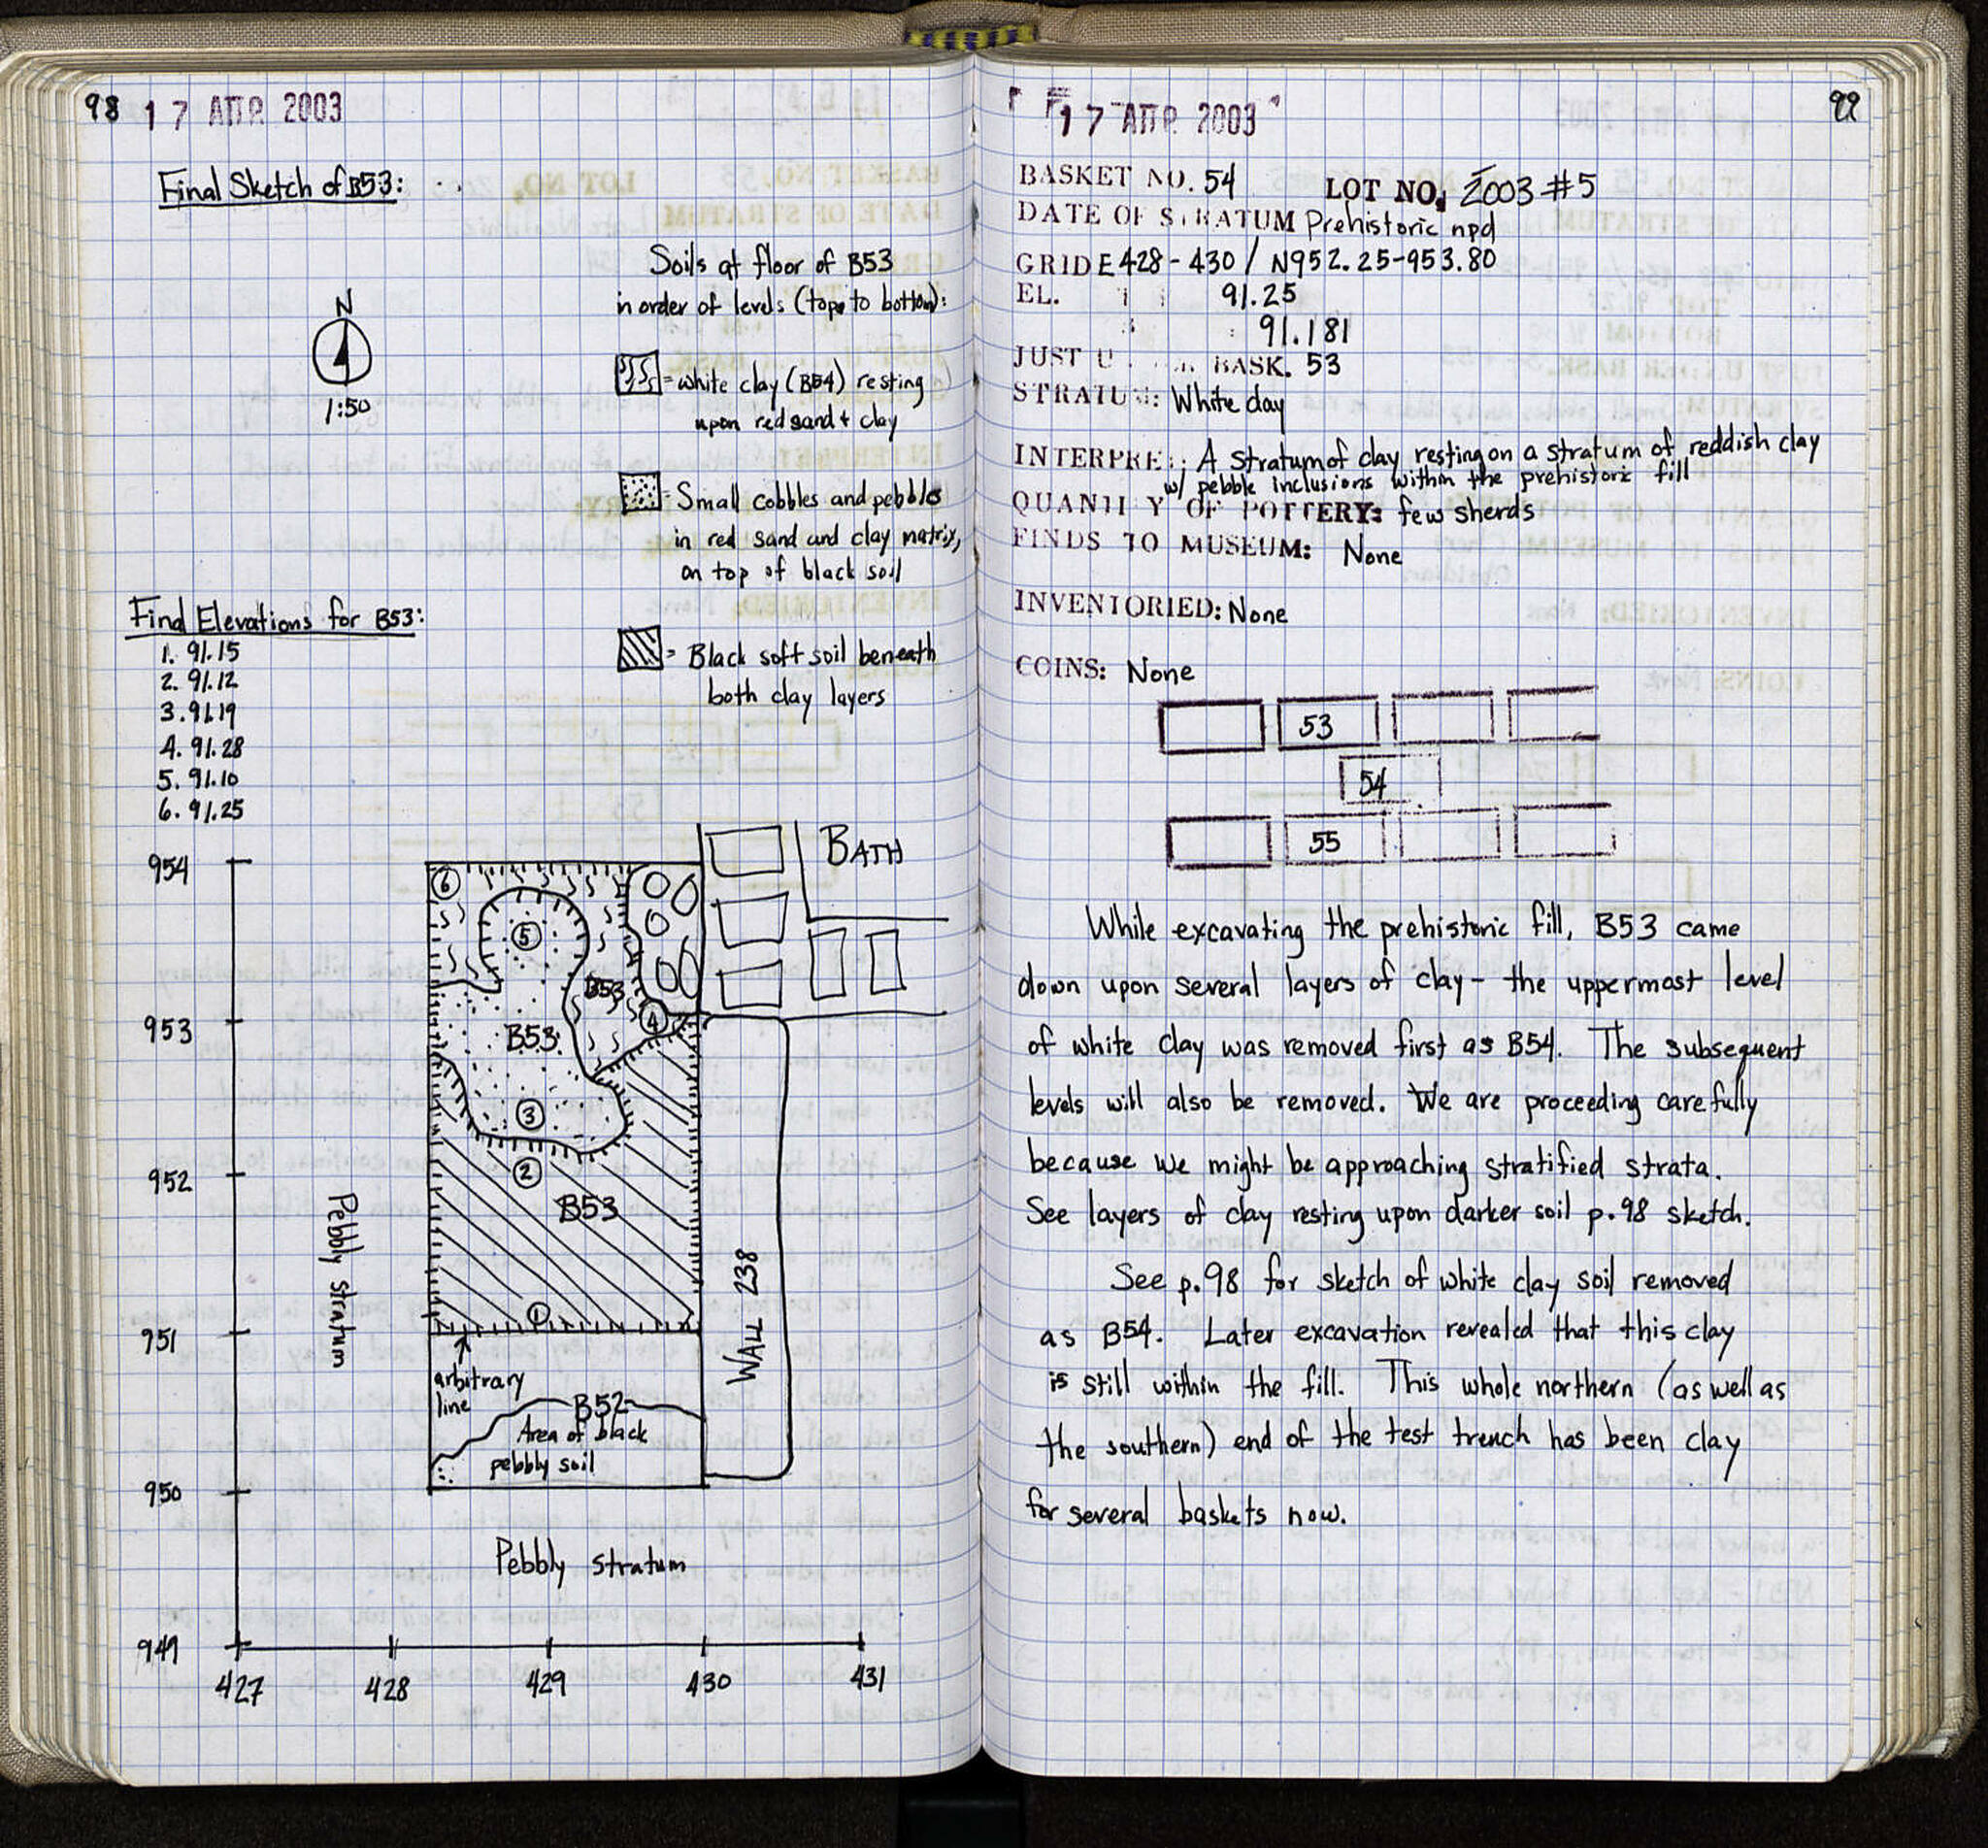 98 17 ΑΠΡ. 2003
Final Sketch of B53:
Soils at floor of B53
in order of levels (top to bottom):
N
1:50
= white clay (B54) resting
upon red sand + clay
= Small cobbles and pebbles
in red sand and clay matrix,
on top of black soil
= Black soft soil beneath
both clay layers
Find Elevations for B53:
1. 91.15
2. 91.12
3. 91.19
4. 91.28
5. 91.10
6. 91.25
954
953
952
951
950
949
427 428 429 430 431
BATH
6
5
B53
4
B53
3
2
B53
1
Pebbly stratum
WALL 238
arbitrary
line
B52
Area of black
pebbly soil
Pebbly stratum
17 ΑΠΡ. 2003 99
BASKET NO. 54 LOT NO. 2003 #5
DATE OF STRATUM Prehistoric npd
GRID E428-430 / N952.25-953.80
EL. 91.25
91.181
JUST U BASK. 53
STRATUM: White clay
INTERPRE: A stratum of clay resting on a stratum of reddish clay
w/ pebble inclusions within the prehistoric fill
QUANTITY OF POTTERY: few sherds
FINDS TO MUSEUM: None
INVENTORIED: None
COINS: None
53
54
55
While excavating the prehistoric fill, B53 came
down upon several layers of clay - the uppermost level
of white clay was removed first as B54. The subsequent
levels will also be removed. We are proceeding carefully
because we might be approaching stratified strata.
See layers of clay resting upon darker soil p.98 sketch.
See p.98 for sketch of white clay soil removed
as B54. Later excavation revealed that this clay
is still within the fill. This whole northern (as well as
the southern) end of the test trench has been clay
for several baskets now.